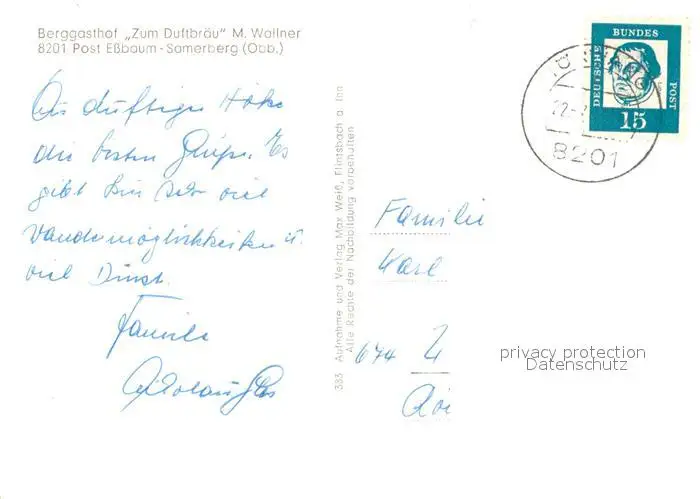 Berggasthof „Zum Duftbräu" M. Wallner
8201 Post Eßbaum - Samerberg (Obb.)
Aus duftiger Höhe
die besten Grüße. Es
gibt hier sehr viel
Wandermöglichkeiten u.
viel Dunst.
Familie
383 Aufnahme und Verlag Max Weiß, Flintsbach a. Inn
Alle Rechte der Nachbildung vorbehalten
DEUTSCHE BUNDES POST
15
22.
8201
Familie
Karl
674
privacy protection
Datenschutz